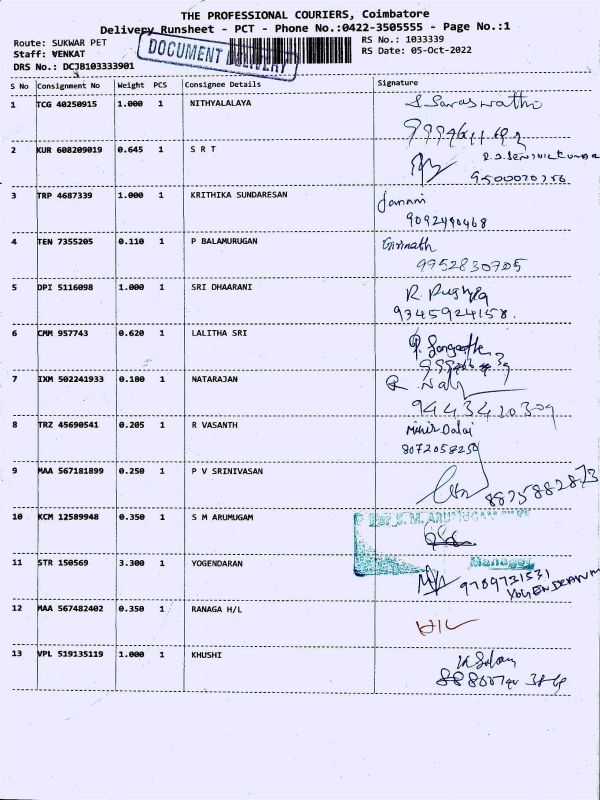 THE PROFESSIONAL COURIERS, Coimbatore
Delivery Runsheet - PCT - Phone No.:0422-3505555 - Page No.:1
Route: SUKWAR PET
Staff: VENKAT
DRS No.: DCJB103333901
DOCUMENT DELIVERY
RS No.: 1033339
RS Date: 05-Oct-2022
S No Consignment No Weight PCS Consignee Details Signature
1 TCG 40250915 1.000 1 NITHYALALAYA S. Saraswathi
2 KUR 608209019 0.645 1 S R T
9500020256
3 TRP 4687339 1.000 1 KRITHIKA SUNDARESAN Janani
9092490468
4 TEN 7355205 0.110 1 P BALAMURUGAN Girinath
9952830705
5 DPI 5116098 1.000 1 SRI DHAARANI R. Pushpa
9345924158.
6 CMM 957743 0.620 1 LALITHA SRI
7 IXM 502241933 0.180 1 NATARAJAN
8 TRZ 45690541 0.205 1 R VASANTH Mihir Dalai
8072058259
9 MAA 567181899 0.250 1 P V SRINIVASAN
8825882873
10 KCM 12589948 0.350 1 S M ARUMUGAM For S. M. ARUMUGAM
Manager
11 STR 150569 3.300 1 YOGENDARAN 9789721531
12 MAA 567482402 0.350 1 RANAGA H/L
13 VPL 519135119 1.000 1 KHUSHI